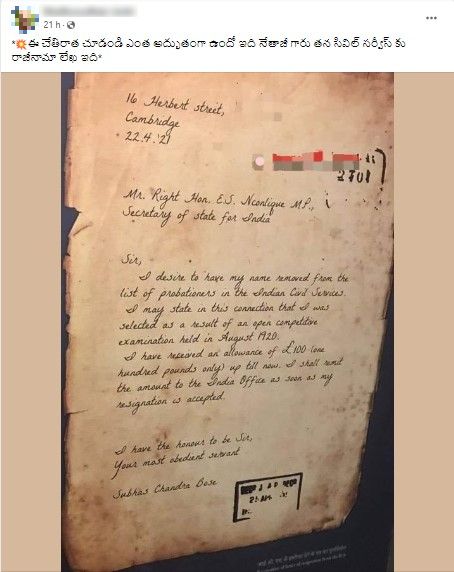 21 h ·
*💥ఈ చేతిరాత చూడండి ఎంత అద్భుతంగా ఉందో ఇది నేతాజీ గారు తన సివిల్ సర్వీస్ కు
రాజీనామా లేఖ ఇది*
16 Herbert street,
Cambridge
22.4.'21
2701
Mr. Right Hon. E.S. Nconlique M.P.,
Secretary of state for India
Sir,
I desire to have my name removed from the
list of probationers in the Indian Civil Services.
I may state in this connection that I was
selected as a result of an open competitive
examination held in August 1920.
I have received an allowance of £100 (one
hundred pounds only) up till now. I shall remit
the amount to the India Office as soon as my
resignation is accepted.
I have the honour to be Sir,
Your most obedient servant
Subhas Chandra Bose